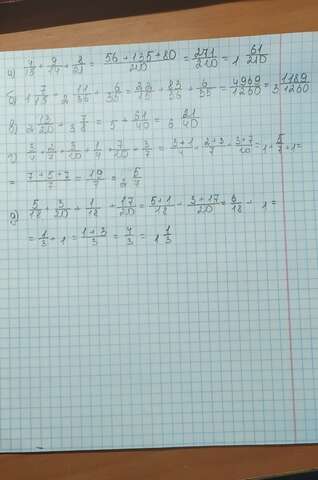 а) 4/15 + 9/14 + 8/21 = (56+135+80)/210 = 271/210 = 1 61/210
б) 1 7/15 + 2 11/36 + 6/35 = 22/15 + 83/36 + 6/35 = 4969/1260 = 3 1189/1260
в) 2 13/20 + 3 7/8 = 5 + 61/40 = 6 21/40
г) 3/4 + 2/7 + 3/10 + 1/4 + 7/10 + 3/7 = (3+1)/4 + (2+3)/7 + (3+7)/10 = 1 + 5/7 + 1 =
= (7+5+7)/7 = 19/7 = 2 5/7
д) 5/18 + 3/20 + 1/18 + 17/20 = (5+1)/18 + (3+17)/20 = 6/18 + 1 =
= 1/3 + 1 = (1+3)/3 = 4/3 = 1 1/3